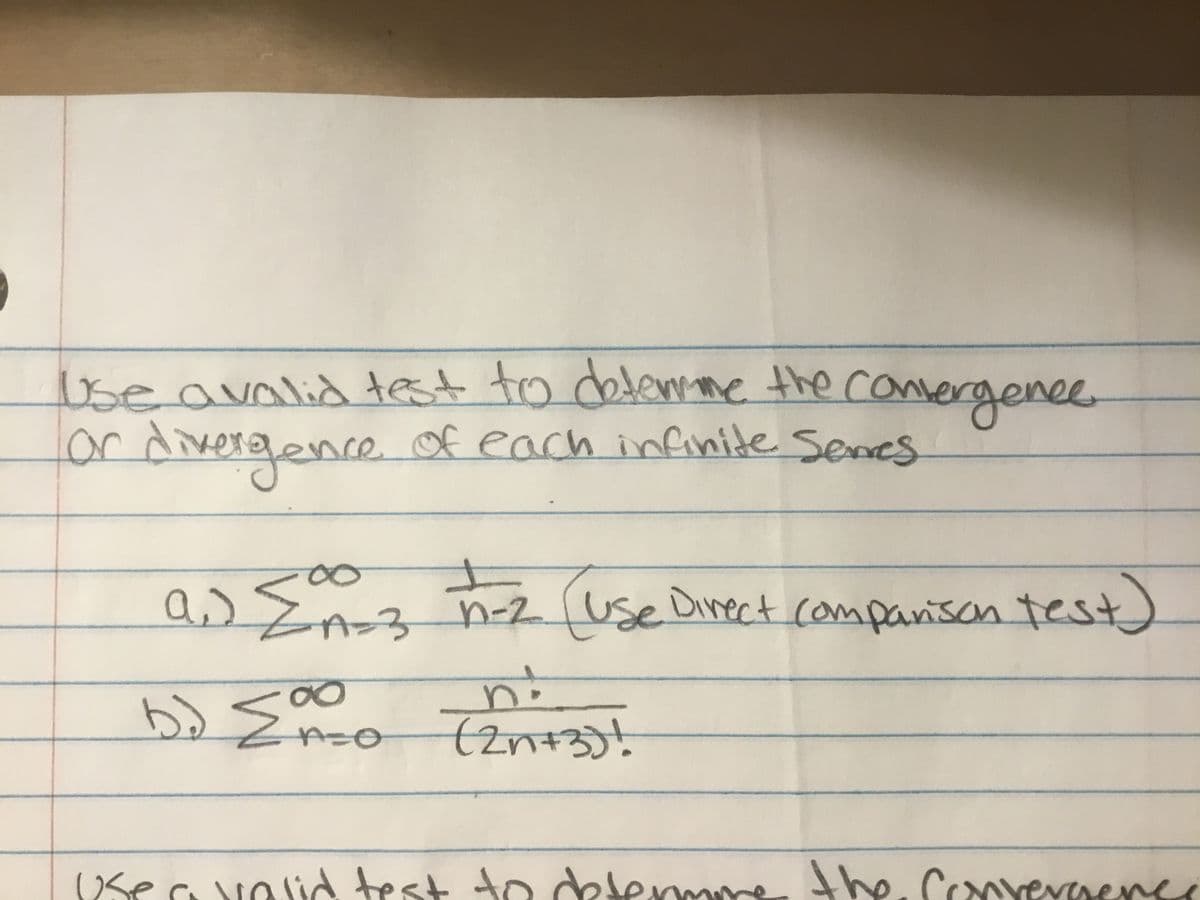 Use a valid test to determine the convergence
or divergence of each infinite Series
a.) ∑∞n=3 1/n-2 (Use Direct comparison test)
b.) ∑∞n=0 n!/(2n+3)!
Use a valid test to determine the Convergence